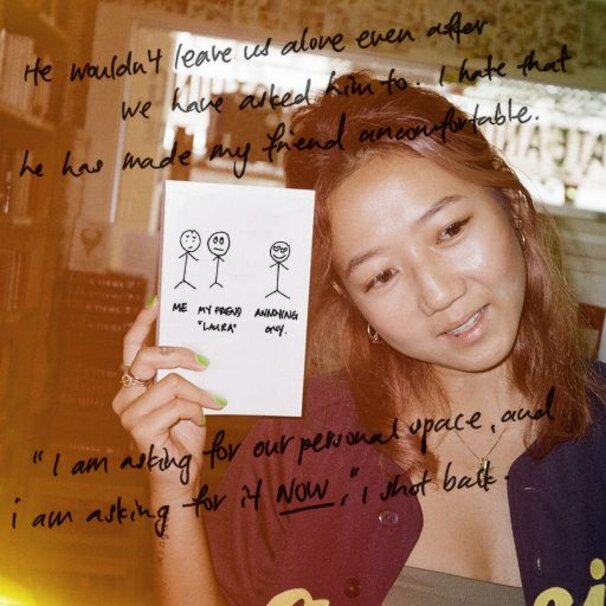 He wouldn't leave us alone even after
we have asked him to. I hate that
he has made my friend uncomfortable.
ME MY FRIEND ANNOYING
"LAURA" GUY.
"I am asking for our personal space, and
i am asking for it NOW," I shot back.